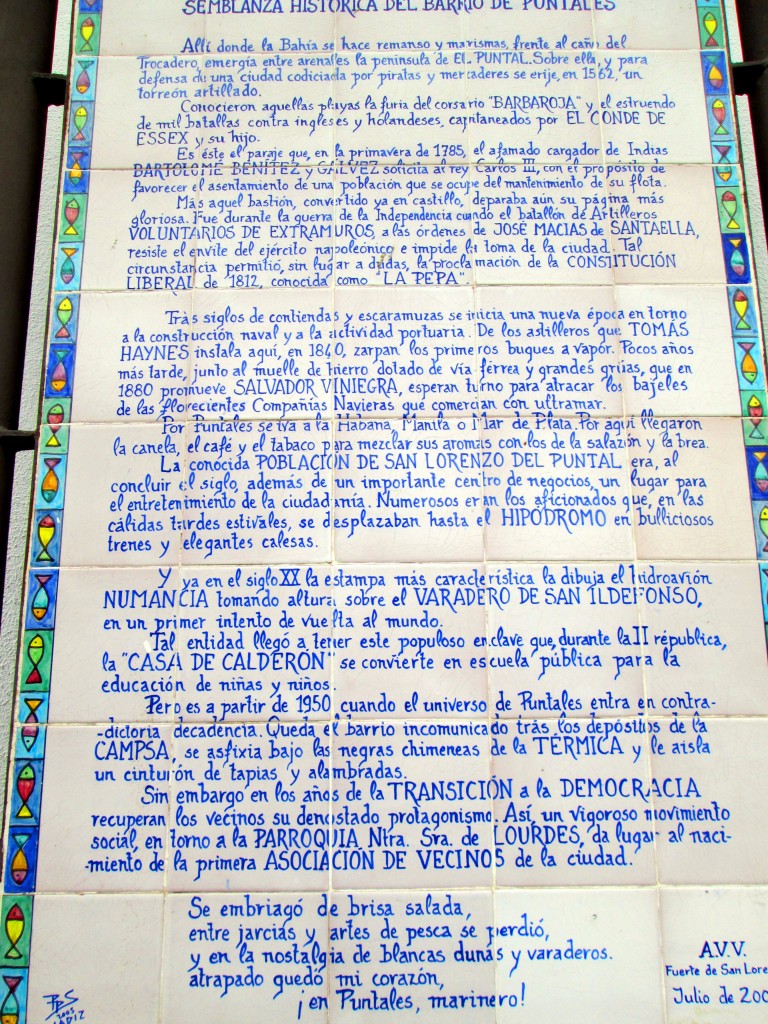 SEMBLANZA HISTÓRICA DEL BARRIO DE PUNTALES
Allí donde la Bahía se hace remanso y marismas, frente al caño del
Trocadero, emergía entre arenales la península de EL PUNTAL. Sobre ella, y para
defensa de una ciudad codiciada por piratas y mercaderes se erije, en 1562, un
torreón artillado.
Conocieron aquellas playas la furia del corsario "BARBAROJA" y el estruendo
de mil batallas contra ingleses y holandeses, capitaneados por EL CONDE DE
ESSEX y su hijo.
Es éste el paraje que, en la primavera de 1785, el afamado cargador de Indias
BARTOLOMÉ BENÍTEZ y GÁLVEZ solicita al rey Carlos III, con el propósito de
favorecer el asentamiento de una población que se ocupe del mantenimiento de su flota.
Más aquel bastión, convertido ya en castillo, deparaba aún su página más
gloriosa. Fue durante la guerra de la Independencia cuando el batallón de Artilleros
VOLUNTARIOS DE EXTRAMUROS, a las órdenes de JOSÉ MACÍAS DE SANTAELLA,
resiste el envite del ejército napoleónico e impide la toma de la ciudad. Tal
circunstancia permitió, sin lugar a dudas, la proclamación de la CONSTITUCIÓN
LIBERAL de 1812, conocida como "LA PEPA".
Trás siglos de contiendas y escaramuzas se inicia una nueva época en torno
a la construcción naval y a la actividad portuaria. De los astilleros que TOMÁS
HAYNES instala aquí, en 1840, zarpan los primeros buques a vapor. Pocos años
más tarde, junto al muelle de hierro dotado de vía férrea y grandes grúas, que en
1880 promueve SALVADOR VINIEGRA, esperan turno para atracar los bajeles
de las florecientes Compañías Navieras que comercian con ultramar.
Por Puntales se iva a la Habana, Manila o Mar de Plata. Por aquí llegaron
la canela, el café y el tabaco para mezclar sus aromas con los de la salazón y la brea.
La conocida POBLACIÓN DE SAN LORENZO DEL PUNTAL era, al
concluir el siglo, además de un importante centro de negocios, un lugar para
el entretenimiento de la ciudadanía. Numerosos eran los aficionados que, en las
cálidas tardes estivales, se desplazaban hasta el HIPÓDROMO en bulliciosos
trenes y elegantes calesas.
Y ya en el siglo XX la estampa más característica la dibuja el hidroavión
NUMANCIA tomando altura sobre el VARADERO DE SAN ILDEFONSO,
en un primer intento de vuelta al mundo.
Tal entidad llegó a tener este populoso enclave que, durante la II républica,
la "CASA DE CALDERÓN" se convierte en escuela pública para la
educación de niñas y niños.
Pero es a partir de 1950 cuando el universo de Puntales entra en contra-
-dictoria decadencia. Queda el barrio incomunicado trás los depósitos de la
CAMPSA, se asfixia bajo las negras chimeneas de la TÉRMICA y le aisla
un cinturón de tapias y alambradas.
Sin embargo en los años de la TRANSICIÓN a la DEMOCRACIA
recuperan los vecinos su denostado protagonismo. Así, un vigoroso movimiento
social, en torno a la PARROQUIA Ntra. Sra. de LOURDES, da lugar al naci-
-miento de la primera ASOCIACIÓN DE VECINOS de la ciudad.
Se embriagó de brisa salada,
entre jarcias y artes de pesca se perdió,
y en la nostalgia de blancas dunas y varaderos.
atrapado quedó mi corazón,
¡en Puntales, marinero!
A.V.V.
Fuerte de San Lore
Julio de 200
2005
CÁDIZ